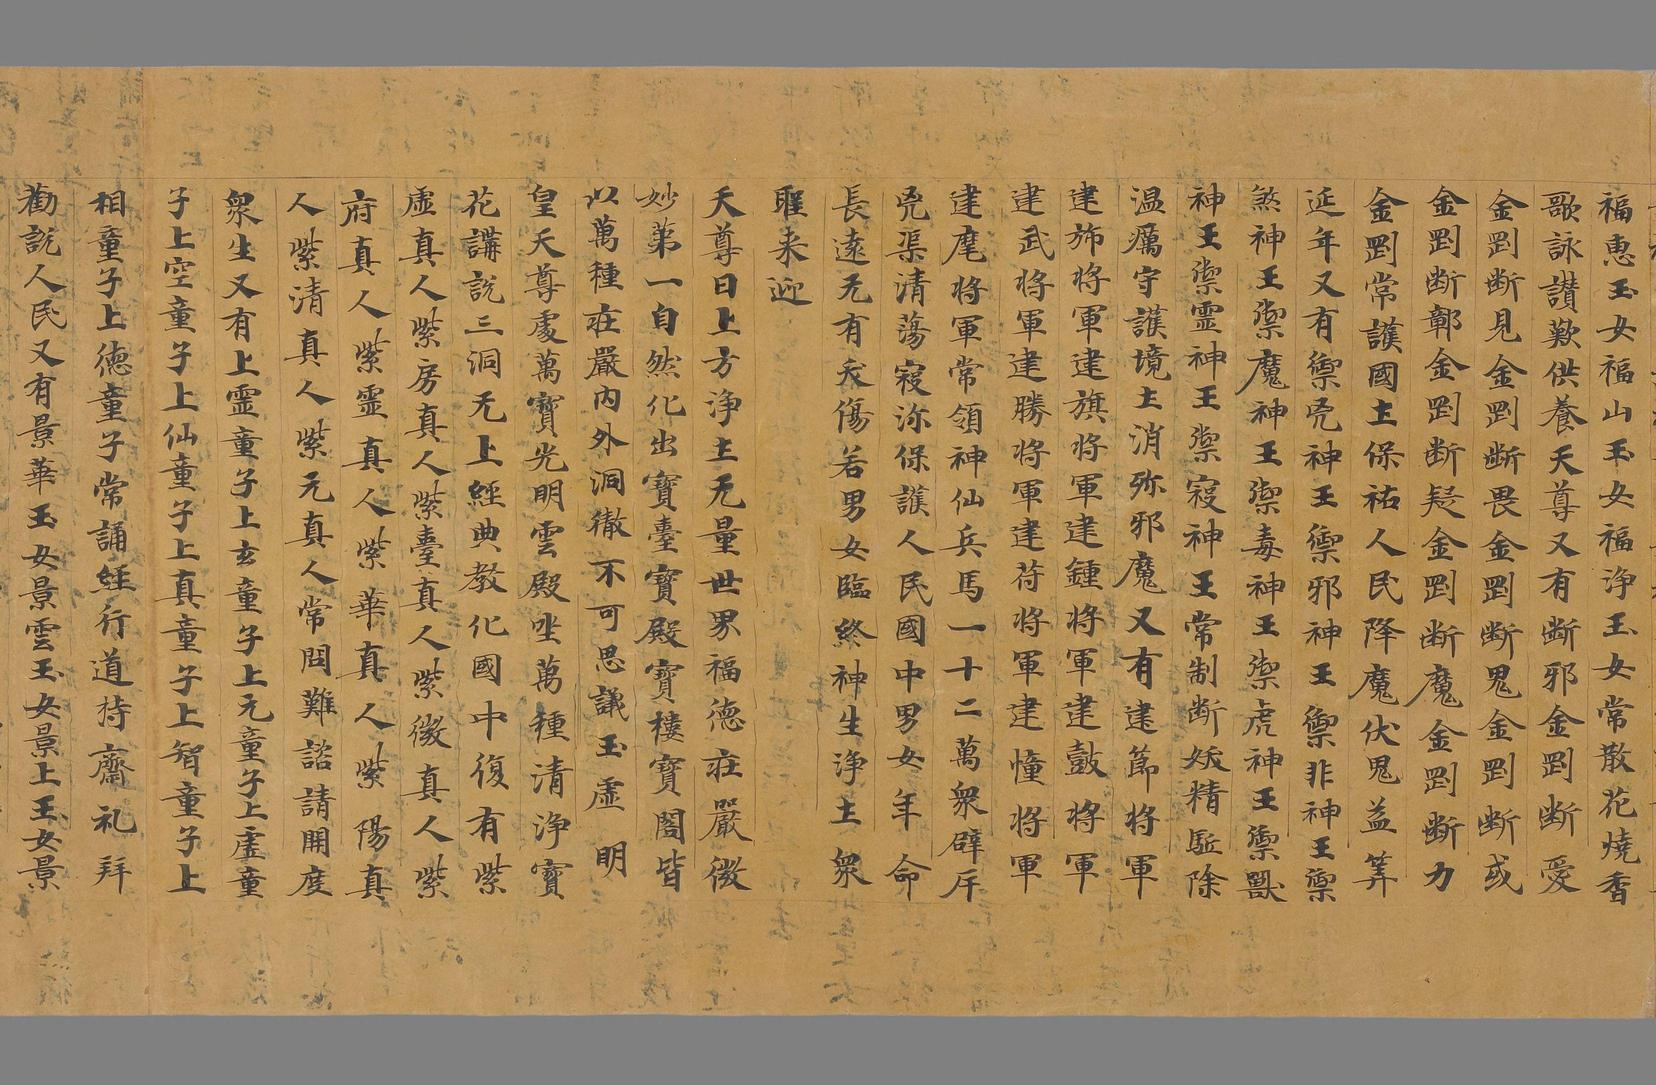 福惠玉女福山玉女福淨玉女常散花燒香
歌詠讃歎供養天尊又有断邪金剛断愛
金剛断見金剛断畏金剛断鬼金剛断或
金剛断鄣金剛断疑金剛断魔金剛断力
金剛常護國土保祐人民降魔伏鬼益筭
延年又有禦兇神王禦邪神王禦非神王禦
煞神王禦魔神王禦毒神王禦虎神王禦獸
神王禦靈神王禦寇神王常制断妖精駈除
温癘守護境土消弥邪魔又有建節將軍
建斾將軍建旗將軍建鍾將軍建鼓將軍
建武將軍建勝將軍建苻將軍建幢將軍
建麾將軍常領神仙兵馬一十二萬衆辟斥
兇渠清蕩寇㳽保護人民國中男女年命
長遠无有夭傷若男女臨終神生淨土衆
聖来迎
天尊曰上方淨土无量世界福德庄嚴微
妙第一自然化出寶臺寶殿寶樓寶閣皆
以萬種庄嚴内外洞徹不可思議玉虛明
皇天尊處萬寶光明雲殿坐萬種清淨寶
花講説三洞无上經典教化國中復有紫
虛真人紫房真人紫臺真人紫微真人紫
府真人紫靈真人紫華真人紫陽真
人紫清真人紫元真人常問難諮請開度
衆生又有上靈童子上玄童子上元童子上虛童
子上空童子上仙童子上真童子上智童子上
相童子上德童子常誦經行道持齋礼拜
勸説人民又有景華玉女景雲玉女景上玉女景